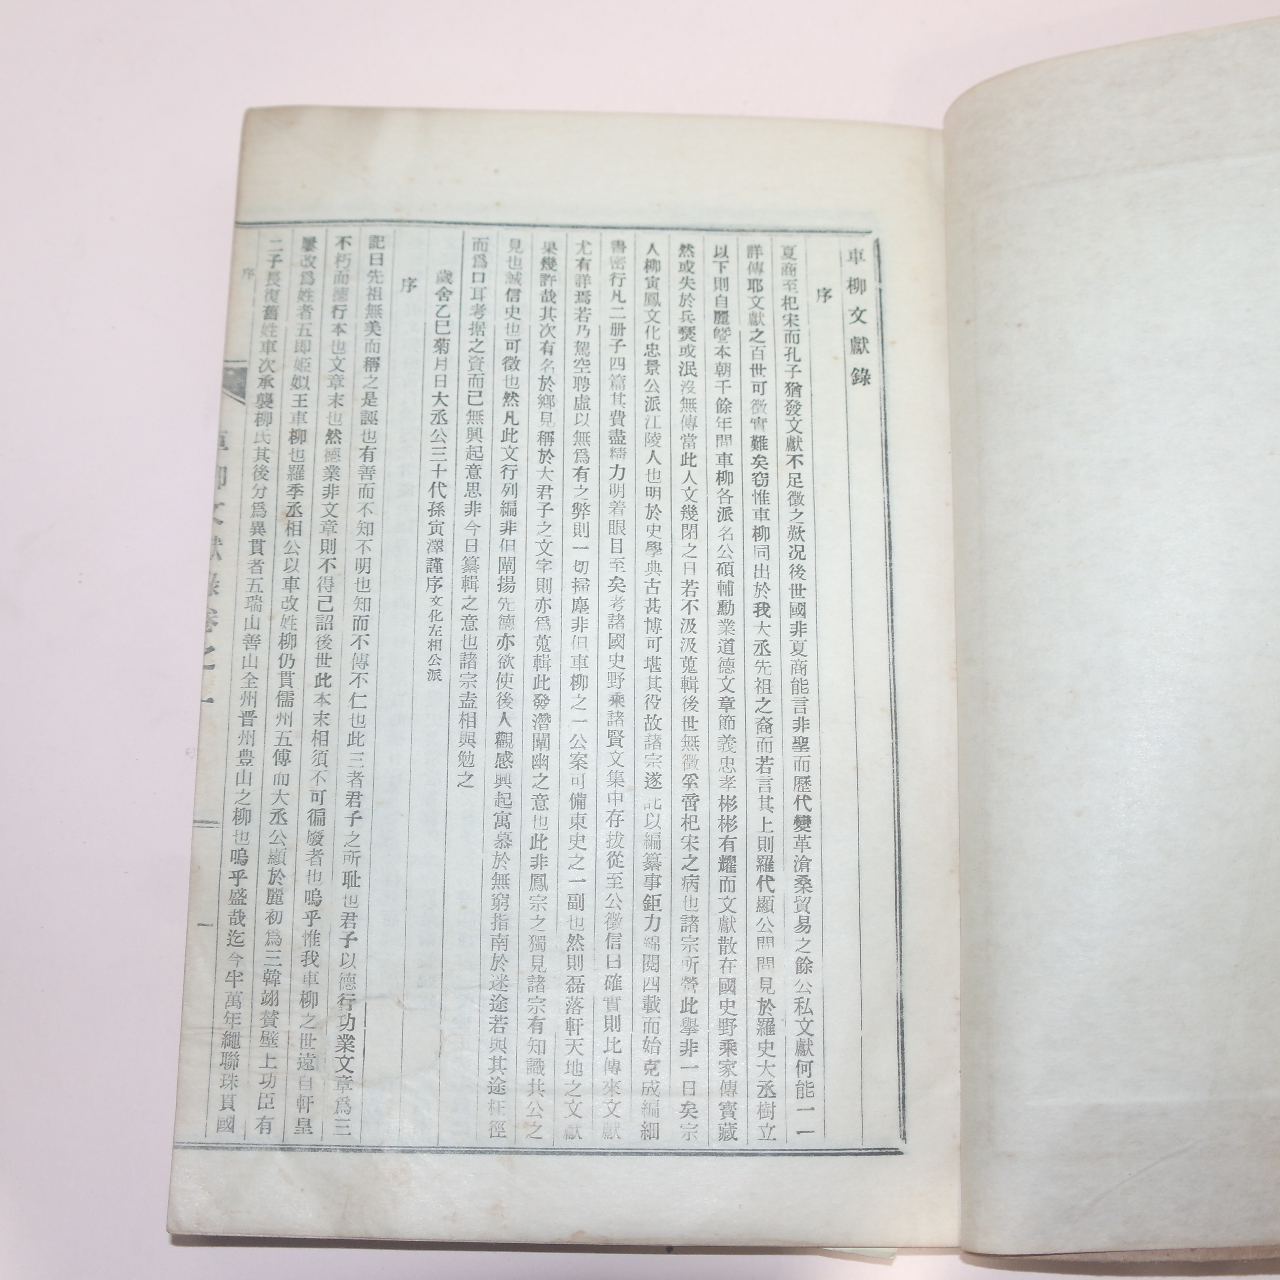 車柳文獻錄
序
夏商至杞宋而孔子猶發文獻不足徵之歎况後世國非夏商能言非聖而歷代變革滄桑貿易之餘公私文獻何能一一
詳傳耶文獻之百世可徵實難矣窃惟車柳同出於我大丞先祖之裔而若言其上則羅代顯公間間見於羅史大丞樹立
以下則自麗曁本朝千餘年間車柳各派名公碩輔勳業道德文章節義忠孝彬彬有耀而文獻散在國史野乘家傳寶藏
然或失於兵燹或泯沒無傳當此人文幾閉之日若不汲汲蒐輯後世無徵奚啻杞宋之病也諸宗所營此擧非一日矣宗
人柳寅鳳文化忠景公派江陵人也明於史學典古甚博可堪其役故諸宗遂託以編纂事鉅力綿閱四載而始克成編細
書密行凡二册子四篇其費盡精力明着眼目至矣考諸國史野乘諸賢文集中存拔從至公徵信曰確實則比傳來文獻
尤有詳焉若乃駕空聘虛以無爲有之弊則一切掃塵非但車柳之一公案可備東史之一副也然則磊落軒天地之文獻
果幾許哉其次有名於鄉見稱於大君子之文字則亦爲蒐輯此發潛闡幽之意也此非鳳宗之獨見諸宗有知識共公之
見也誠信史也可徵也然凡此文行列編非但闡揚先德亦欲使後人觀感興起寓慕於無窮指南於迷途若與其途枉徑
而爲口耳考据之資而已無興起意思非今日纂輯之意也諸宗盍相與勉之
歲舍乙巳菊月日大丞公三十代孫寅澤謹序文化左相公派
序
記曰先祖無美而稱之是誣也有善而不知不明也知而不傳不仁也此三者君子之所耻也君子以德行功業文章爲三
不朽而德行本也文章末也然德業非文章則不得已詔後世此本末相須不可徧廢者也嗚乎惟我車柳之世遠自軒皇
屢改爲姓者五即姬姒王車柳也羅季丞相公以車改姓柳仍貫儒州五傳而大丞公顯於麗初爲三韓翊賛壁上功臣有
二子長復舊姓車次承襲柳氏其後分爲異貫者五瑞山善山全州晋州豊山之柳也嗚乎盛哉迄今半萬年繩聯珠貫國
序
車柳文獻錄卷之一
一